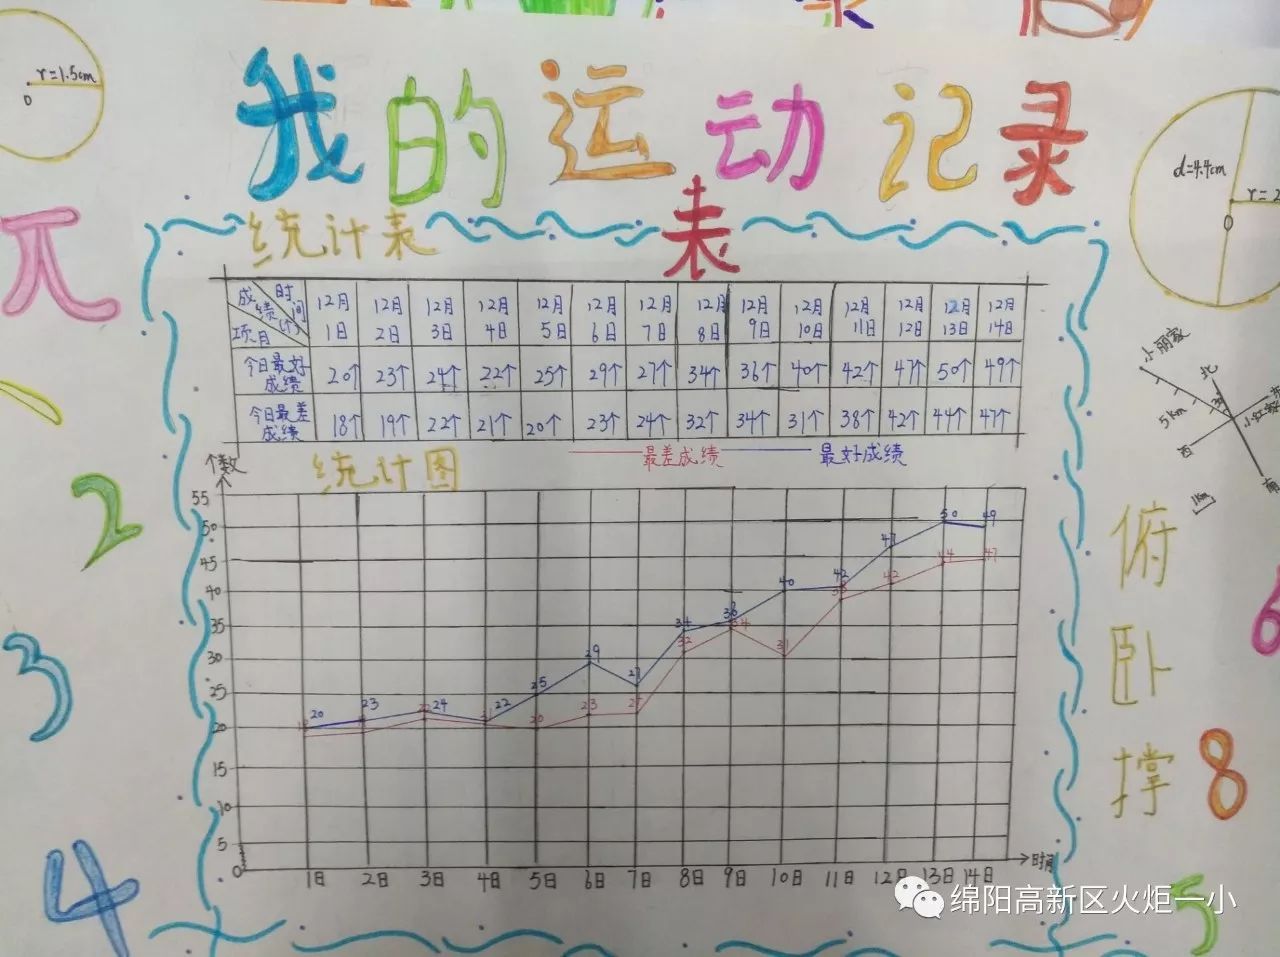 r=1.5cm
O
我的运动记录
表
d=4.4cm
O
π
统计表
成绩 时间
(个)
项目
12月1日 12月2日 12月3日 12月4日 12月5日 12月6日 12月7日 12月8日 12月9日 12月10日 12月11日 12月12日 12月13日 12月14日
今日最好成绩 20个 23个 24个 22个 25个 29个 27个 34个 36个 40个 42个 47个 50个 49个
今日最差成绩 18个 19个 22个 21个 20个 23个 24个 32个 34个 31个 38个 42个 44个 47个
最差成绩 最好成绩
统计图
个数
55
50
45
40
35
30
25
20
15
10
5
0
20 23 24 22 25 29 27 34 36 40 42 47 50 49
22 20 23 32 34 31 38 42 44 47
1日 2日 3日 4日 5日 6日 7日 8日 9日 10日 11日 12日 13日 14日
时间
小丽家
北
5km
西
南
俯卧撑
2
3
4
6
8
5
绵阳高新区火炬一小